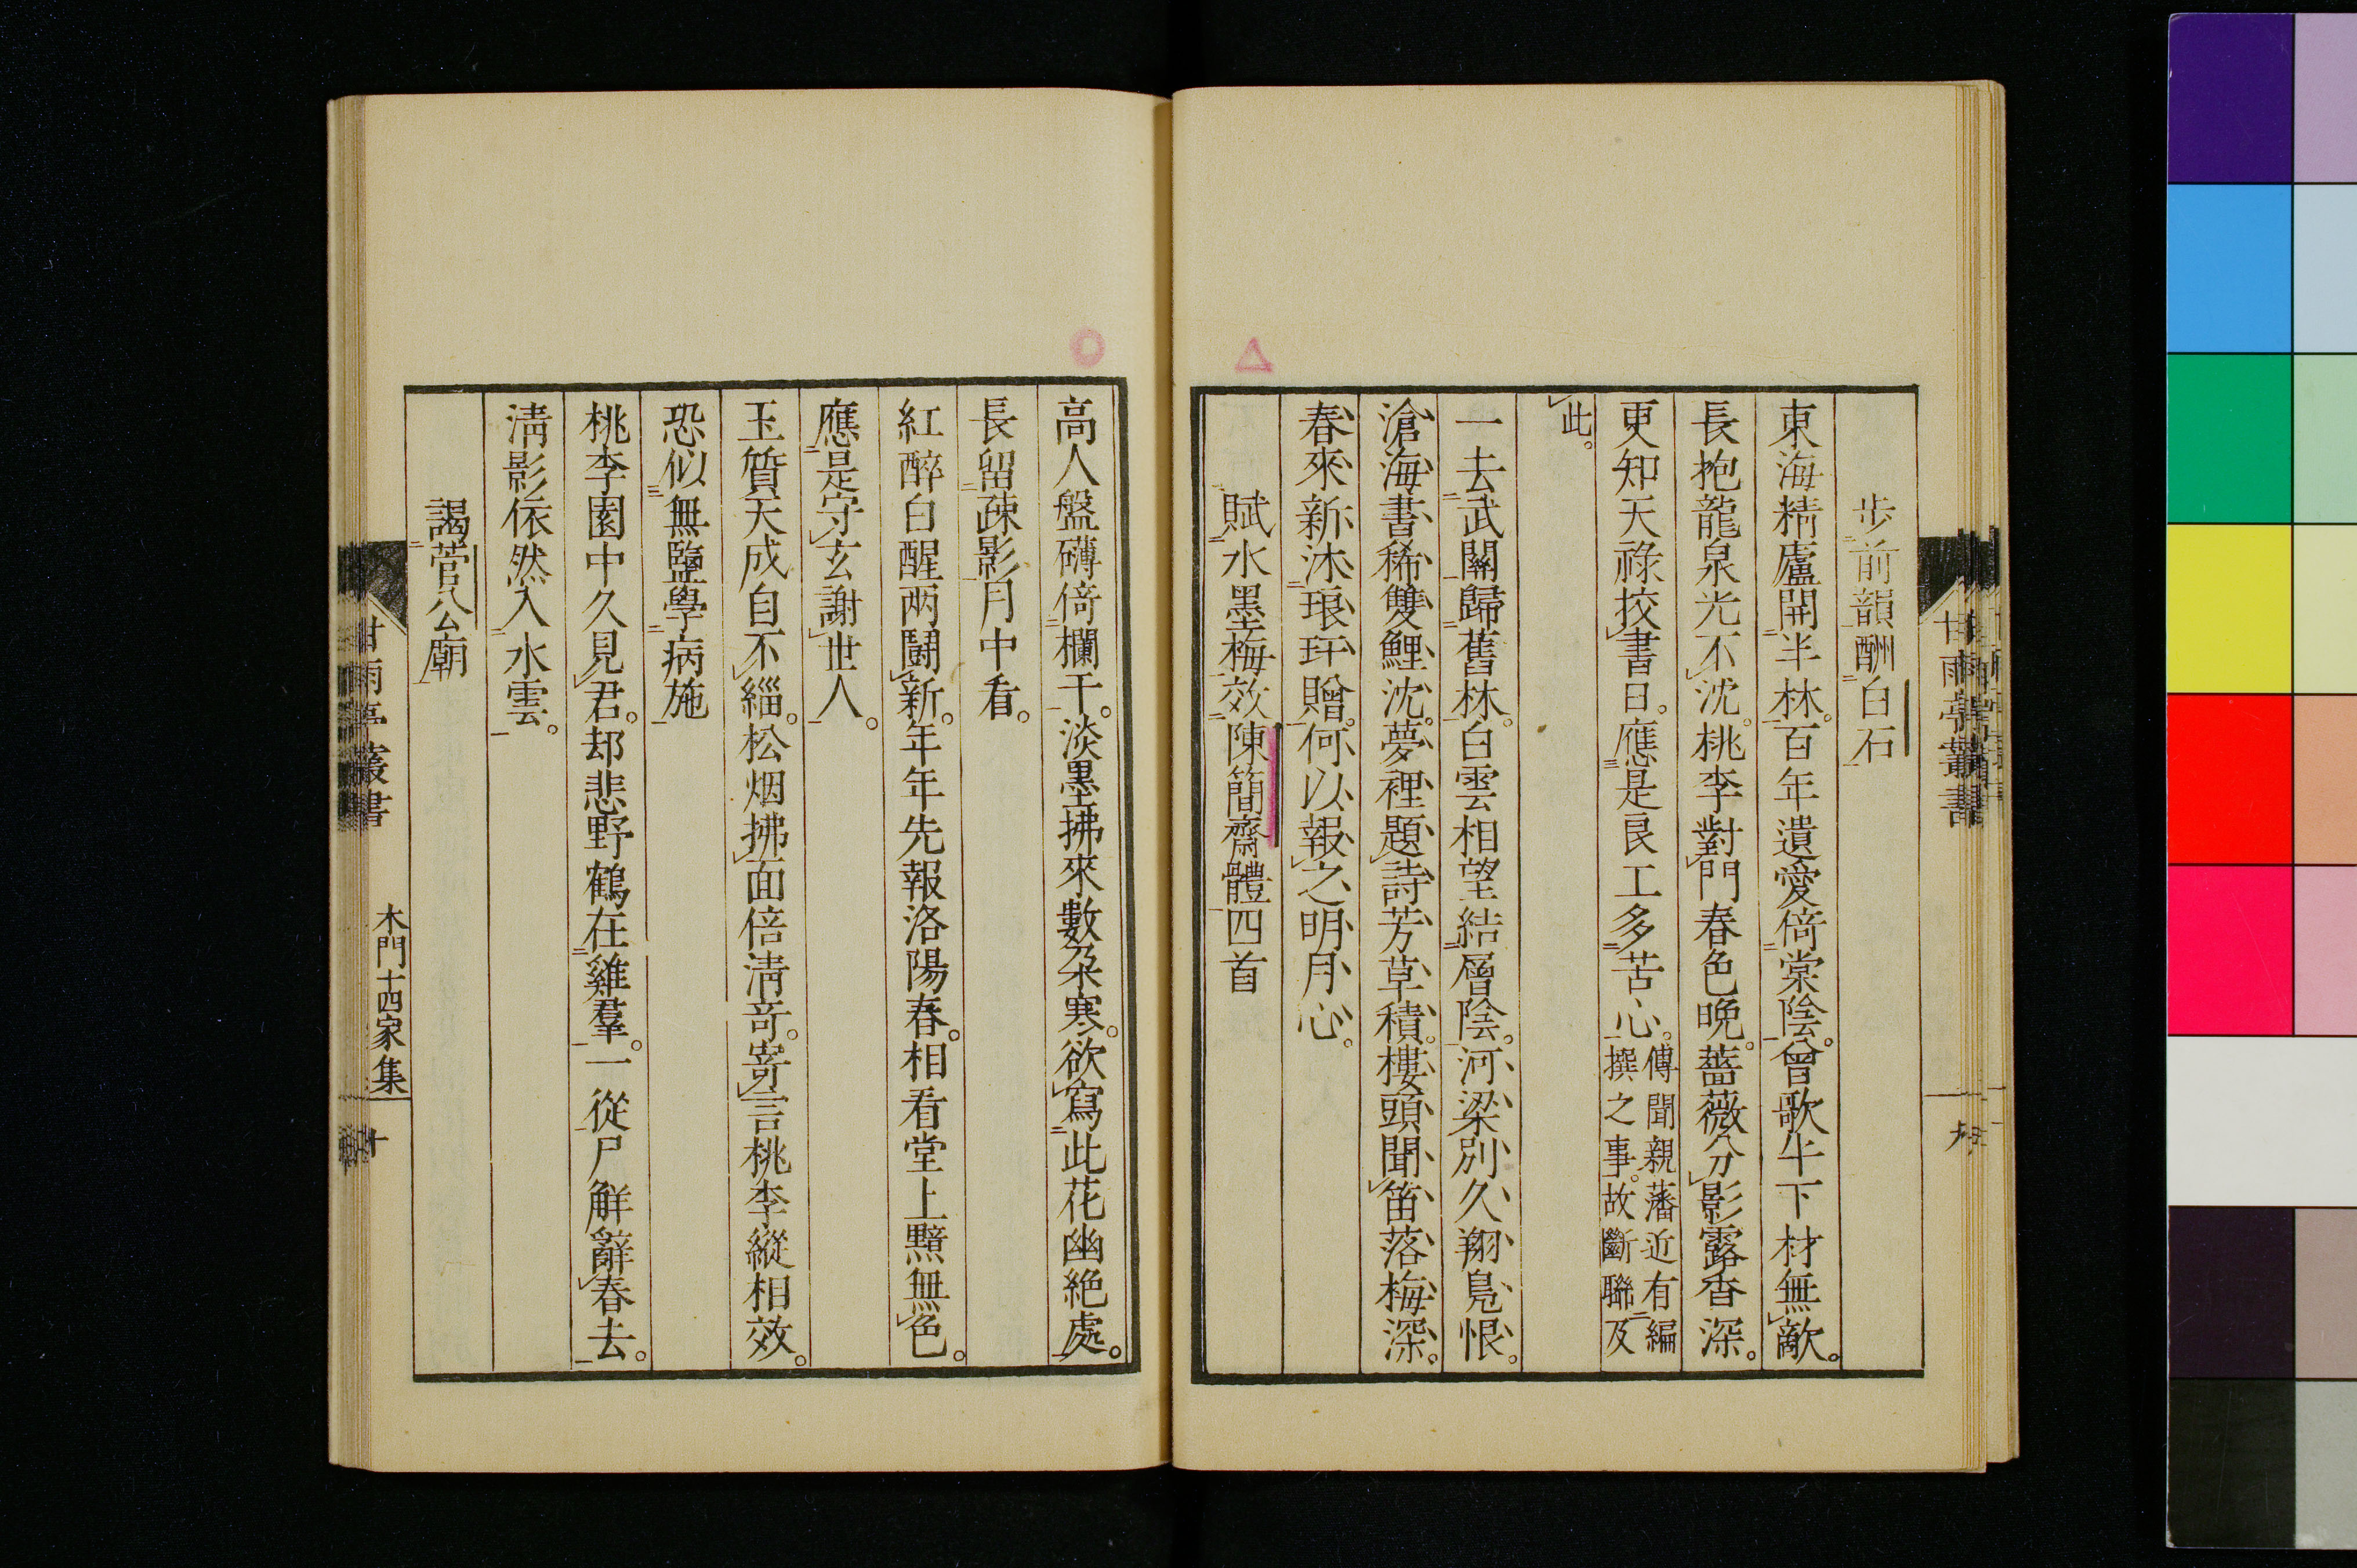 步前韻酬白石
東海精廬開半林。百年遺愛倚棠陰。曾歌牛下材無敵。
長抱龍泉光不沈。桃李對門春色晚。薔薇分影露香深。
更知天祿挍書日。應是良工多苦心。傳聞親藩近有編
撰之事。故斷聯及
此。
一去武關歸舊林。白雲相望結層陰。河梁別久翔鳧恨。
滄海書稀雙鯉沈。夢裡題詩芳草積。樓頭聞笛落梅深。
春來新沐琅玕贈。何以報之明月心。
賦水墨梅效陳簡齋體四首
甘雨亭叢書
九
高人盤礴倚欄干。淡墨拂來數朶寒。欲寫此花幽絕處。
長留疎影月中看。
紅醉白醒两鬪新。年年先報洛陽春。相看堂上黯無色。
應是守玄謝世人。
玉質天成自不緇。松烟拂面倍清竒。寄言桃李縱相效。
恐似無鹽學病施
桃李園中久見君。却悲野鶴在雞羣。一從尸解辭春去。
清影依然入水雲。
謁菅公廟
甘雨亭叢書
木門十四家集
十